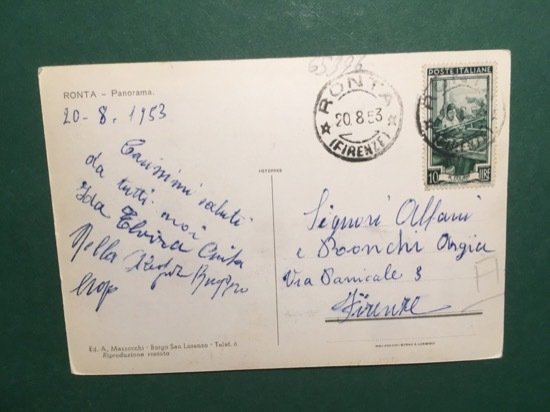 65996
RONTA - Panorama.
20-8. 1953
Carissimi saluti
da tutti noi
Ida Elvira
Nella
RONTA
20.8.53
(FIRENZE)
POSTE ITALIANE
10 LIRE
Signori Alfani
e Ronchi Argia
Via Panicale 3
Firenze
Ed. A. Mazzocchi - Borgo San Lorenzo - Telef. 6
Riproduzione vietata